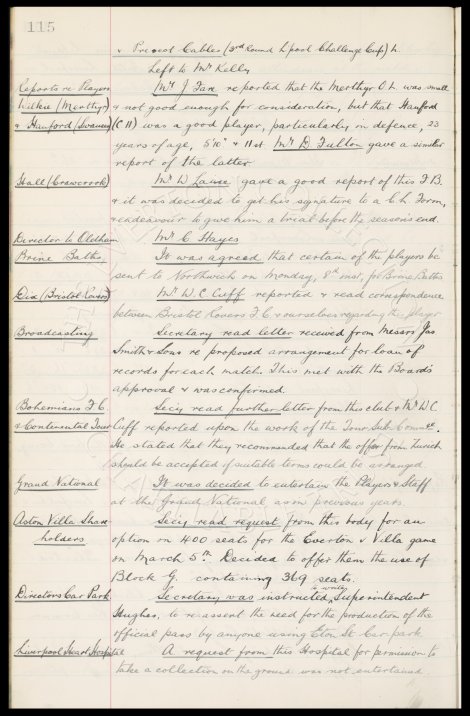 115
v Prescot Cables (3rd Round L'pool Challenge Cup) h.
Left to Mr Kelly
Reports re Players Mr J Fare reported that the Merthyr O.L. was small
Wilkie (Merthyr) & not good enough for consideration, but that Hanford
& Hanford (Swansea) (C H) was a good player, particularly in defence, 23
years of age, 5'10" & 11 st. Mr D. Fulton gave a similar
report of the latter.
Hall (Crawcrook) Mr D Lause gave a good report of this F.B.
& it was decided to get his signature to a C.L. Form,
& endeavour to give him a trial before the season's end.
Director to Oldham Mr C. Hayes
Brine Baths It was agreed that certain of the players be
sent to Northwich on Monday, 8th inst. for Brine Baths
Dix (Bristol Rovers) Mr W.C. Cuff reported & read correspondence
between Bristol Rovers F C & ourselves regarding the player
Broadcasting Secretary read letter received from Messrs Jas
Smith & Sons re proposed arrangement for loan of
records for each match. This met with the Board's
approval & was confirmed.
Bohemians F.C. Secy read further letter from this club & Mr W C
& Continental Tour Cuff reported upon the work of the Tour Sub Comm ee.
He stated that they recommended that the offer from Zurich
should be accepted if suitable terms could be arranged.
Grand National It was decided to entertain the Players & Staff
at the Grand National as in previous years.
Aston Villa Share Secy read request from this body for an
holders option on 400 seats for the Everton v Villa game
on March 5th. Decided to offer them the use of
Block G. containing 369 seats.
Directors Car Park Secretary was instructed to write Superintendent
Hughes, to re-assert the need for the production of the
official pass by anyone using Eton St Car park.
Liverpool Heart Hospital A request from this Hospital for permission to
take a collection on the ground was not entertained.